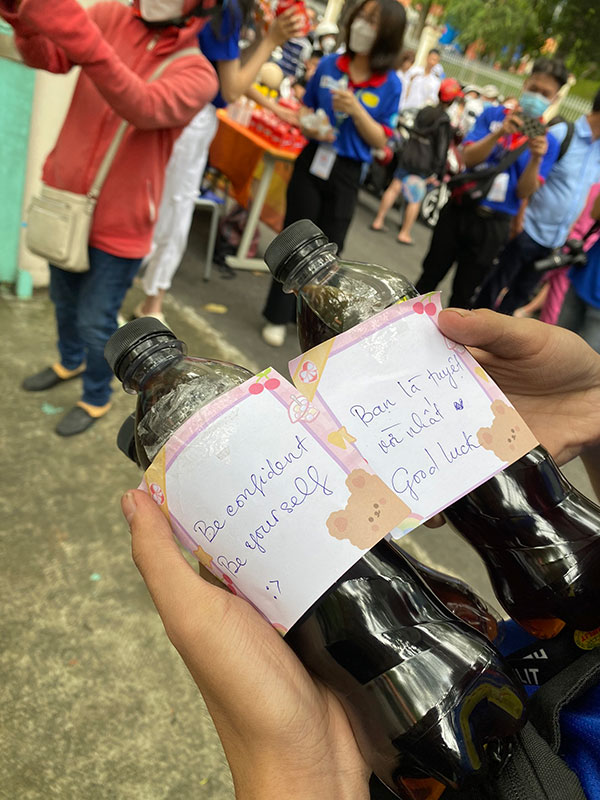 Be confident
Be yourself
:>
Bạn là tuyệt
vời nhất
Good luck